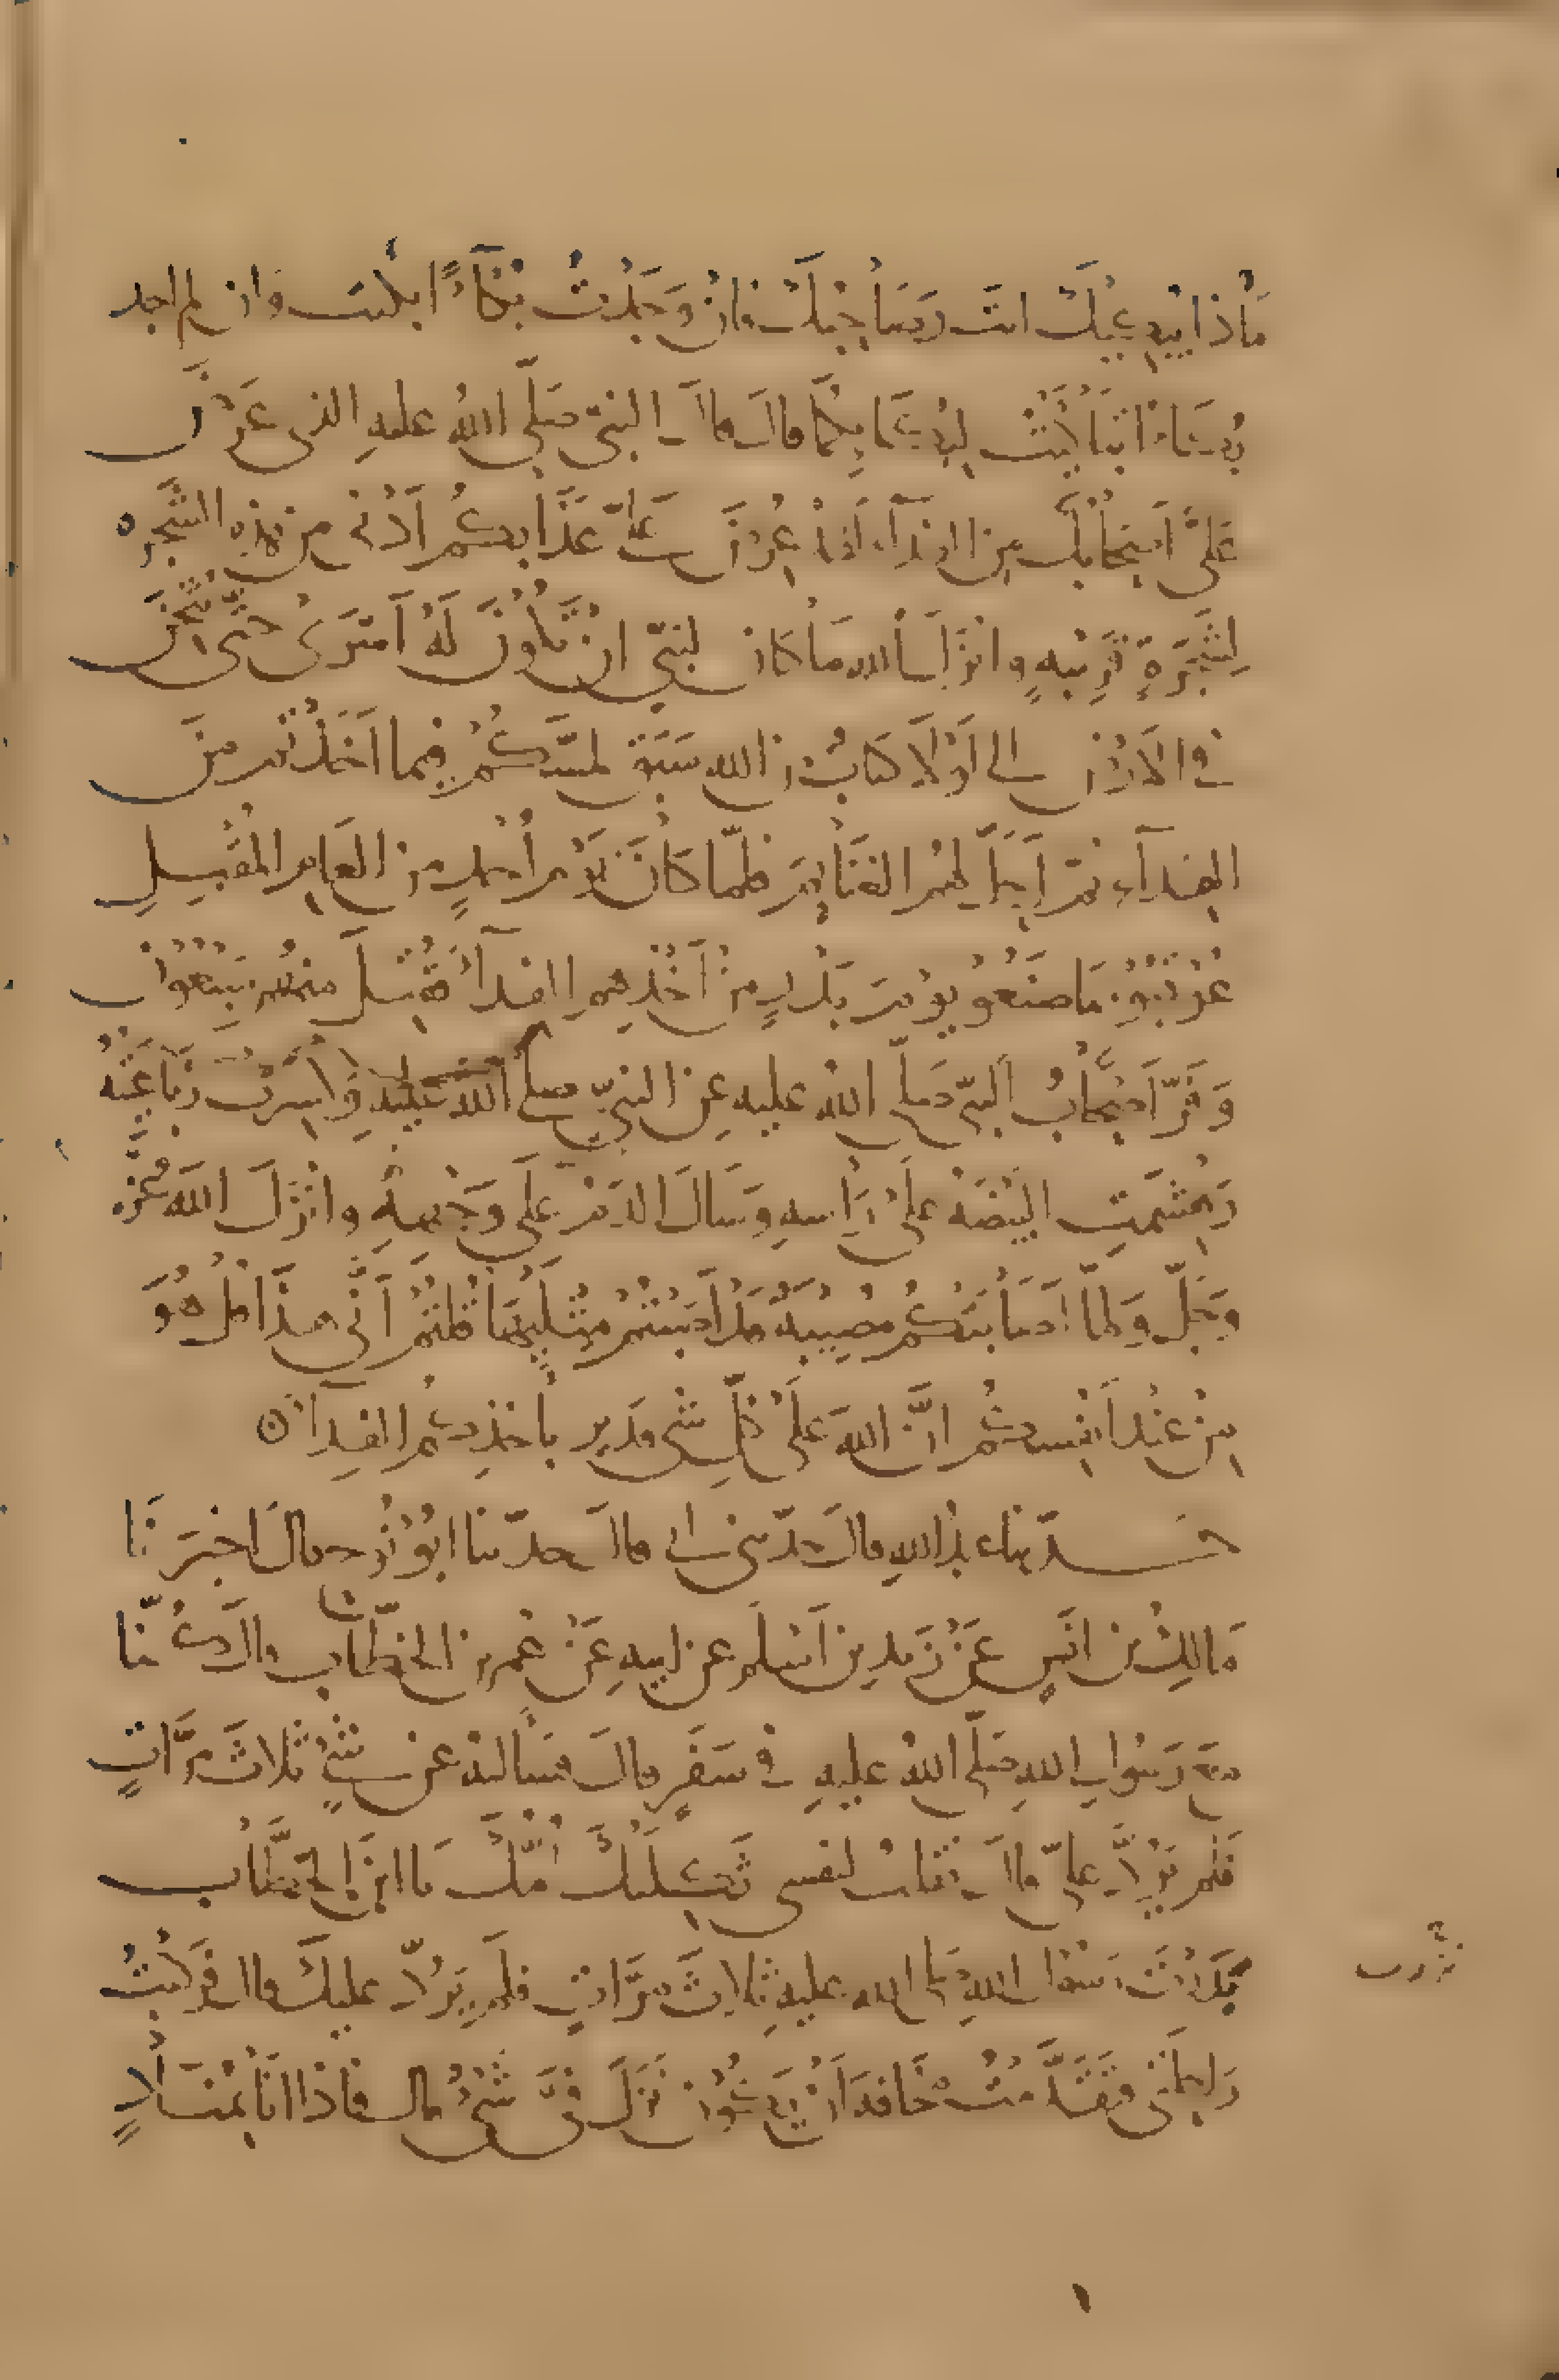 ماذا يبكيك انت وصاحبك فان وجدت بكاءً ابكيت وان لم اجد
بكاء تباكيت لبكائكما قال قال النبي صلى الله عليه الذي عرض
عليّ اصحابك من الفداء لقد عرض عليّ عذابكم أدنى من هذه الشجره
لشجرة قريبه وانزل الله ما كان لنبي ان تكون له أسرى حتى يثخن
في الارض الى لولا كتاب من الله سبق لمسكم فيما أخذتم من
الفداء ثم أحل لهم الغنائم فلما كان يوم أحد من العام المقبل
عوقبوا بما صنعو يوم بدر من أخذهم الفداء فقتل منهم سبعون
وفرّ أصحاب النبي صلى الله عليه عن النبي صلى الله عليه وكسرت رباعيته
وهشمت البيضه على رأسه وسال الدم على وجهه وانزل الله عز
وجل ولما أصابتكم مصيبه قد أصبتم مثليها قلتم أنى هذا قل هو
من عند أنفسكم ان الله على كل شي قدير بأخذكم الفداء
حدثنا عبد الله قال حدثني ابي قال حدثنا ابو نوح قال اخبرنا
مالك بن انس عن زيد بن أسلم عن ابيه عن عمر بن الخطاب قال كنا
مع رسول الله صلى الله عليه في سفر قال فسألته عن شيء ثلاث مرات
فلم يردّ عليّ قال فقلت لنفسي ثكلتك أمك يا ابن الخطاب
نزرت رسول الله صلى الله عليه ثلاث مرات فلم يردّ عليك قال فركبت
راحلتي فتقدمت مخافه أن يكون نزل فيّ شيء قال فاذا انا بمناد
نزرت